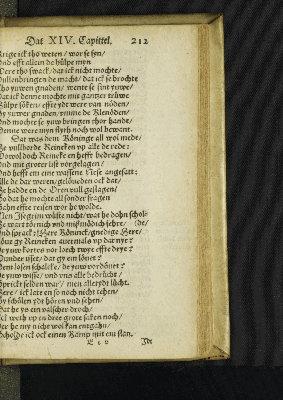 Dat XIV. Capittel. 212
krige ick tho weten / wor se syn /
Und efft allen de hülpe myn
Were tho swack / dat ick nicht mochte /
Vullenbringen de macht / dat ick se brochte
Tho yuwen gnaden / wente se sint yuwe /
Dat ick denne mochte mit gantzer trüwe
Hülpe söken / effte ydt were van nöden /
By yuwer gnaden / umme de Klenöden /
Und mochte se yuw bringen thor handt /
Denne were myn flyth noch wol bewant.
Dat was dem Köninge all wol mede /
He vullborde Reineken up alle de rede:
Wowol doch Reineke en hefft bedragen /
Und mit groter list vorgelagen /
Und hefft em eine wassene Nese angesatt:
Alle de dar weren / gelöueden ock dat /
He hadde en de Oren vull geslagen /
So dat he mochte all sonder fragen
Gahn effte reisen wor he wolde.
Men Isegrim wüste nicht / wat he dohn scholde /
He wart törnich und mißmödich sehre /
Und sprack: Here Köninck / gnedige Here /
Löue gy Reineken auermals up dat nye?
He yuw vorloch vor twye effte drye?
Wunder ysset / dat gy em löuet?
Dem losen schalcke / de yuw vordöuet?
He yuw wisse / und uns alle bedrücht /
Sprickt selden war / men alle tydt lücht.
Here / ick late en so noch nicht tehen /
Gy schölen ydt hören und sehen /
Dat he ys ein valscher droch /
Ick weth up en drere grote saken noch /
Der he my nicht wol kan entgahn /
Scholde ick ock einen Kamp mit em slan.